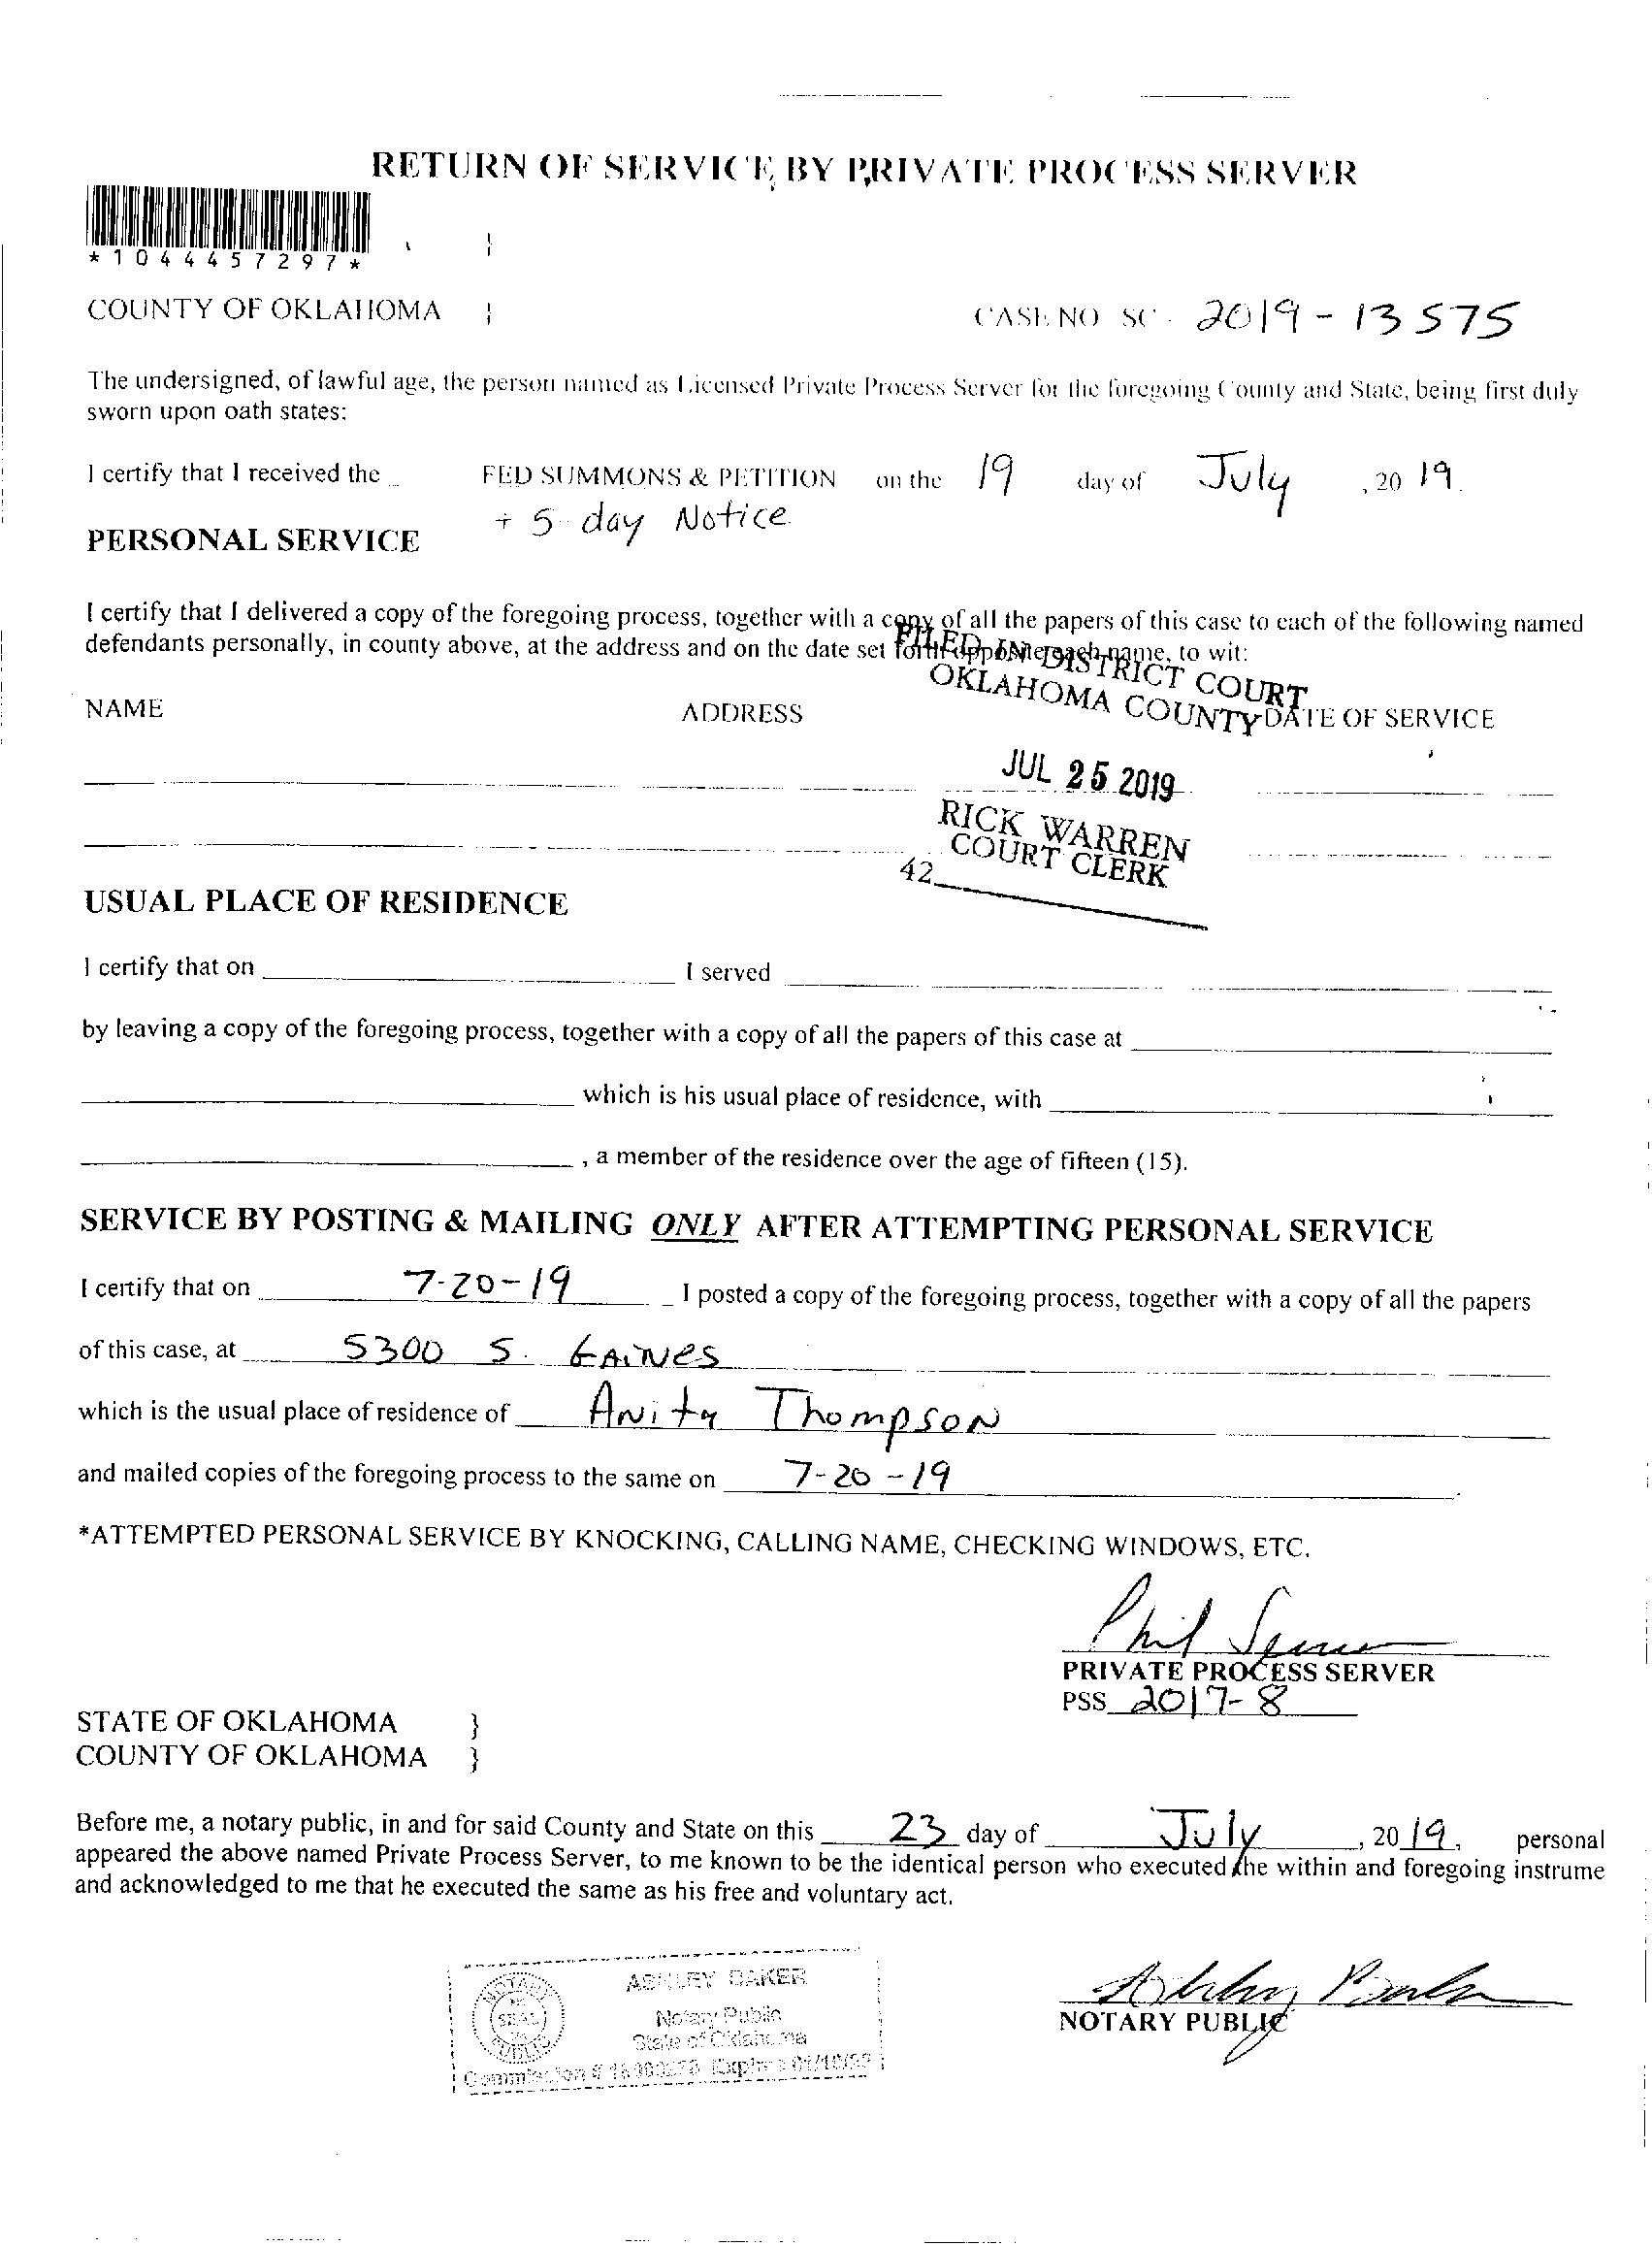 RETURN OF SERVICE BY PRIVATE PROCESS SERVER
*1044457297*
COUNTY OF OKLAHOMA }
CASE NO SC - 2019 - 13575
The undersigned, of lawful age, the person named as Licensed Private Process Server for the foregoing County and State, being first duly
sworn upon oath states:
I certify that I received the FED SUMMONS & PETITION on the 19 day of July, 20 19.
+ 5 day Notice
PERSONAL SERVICE
I certify that I delivered a copy of the foregoing process, together with a copy of all the papers of this case to each of the following named
defendants personally, in county above, at the address and on the date set forth opposite each name, to wit:
FILED IN DISTRICT COURT
OKLAHOMA COUNTY
NAME ADDRESS DATE OF SERVICE
JUL 25 2019
RICK WARREN
COURT CLERK
42
USUAL PLACE OF RESIDENCE
I certify that on I served
by leaving a copy of the foregoing process, together with a copy of all the papers of this case at
which is his usual place of residence, with
, a member of the residence over the age of fifteen (15).
SERVICE BY POSTING & MAILING ONLY AFTER ATTEMPTING PERSONAL SERVICE
I certify that on 7-20-19 I posted a copy of the foregoing process, together with a copy of all the papers
of this case, at 5300 S. GAiNes
which is the usual place of residence of ANita ThompsoN
and mailed copies of the foregoing process to the same on 7-20-19
*ATTEMPTED PERSONAL SERVICE BY KNOCKING, CALLING NAME, CHECKING WINDOWS, ETC.
Phil
PRIVATE PROCESS SERVER
PSS 2017-8
STATE OF OKLAHOMA }
COUNTY OF OKLAHOMA }
Before me, a notary public, in and for said County and State on this 23 day of July, 20 19, personal
appeared the above named Private Process Server, to me known to be the identical person who executed the within and foregoing instrume
and acknowledged to me that he executed the same as his free and voluntary act.
ASHLEY BAKER
Notary Public
State of Oklahoma
Commission #
NOTARY
SEAL
PUBLIC
Ashley Baker
NOTARY PUBLIC